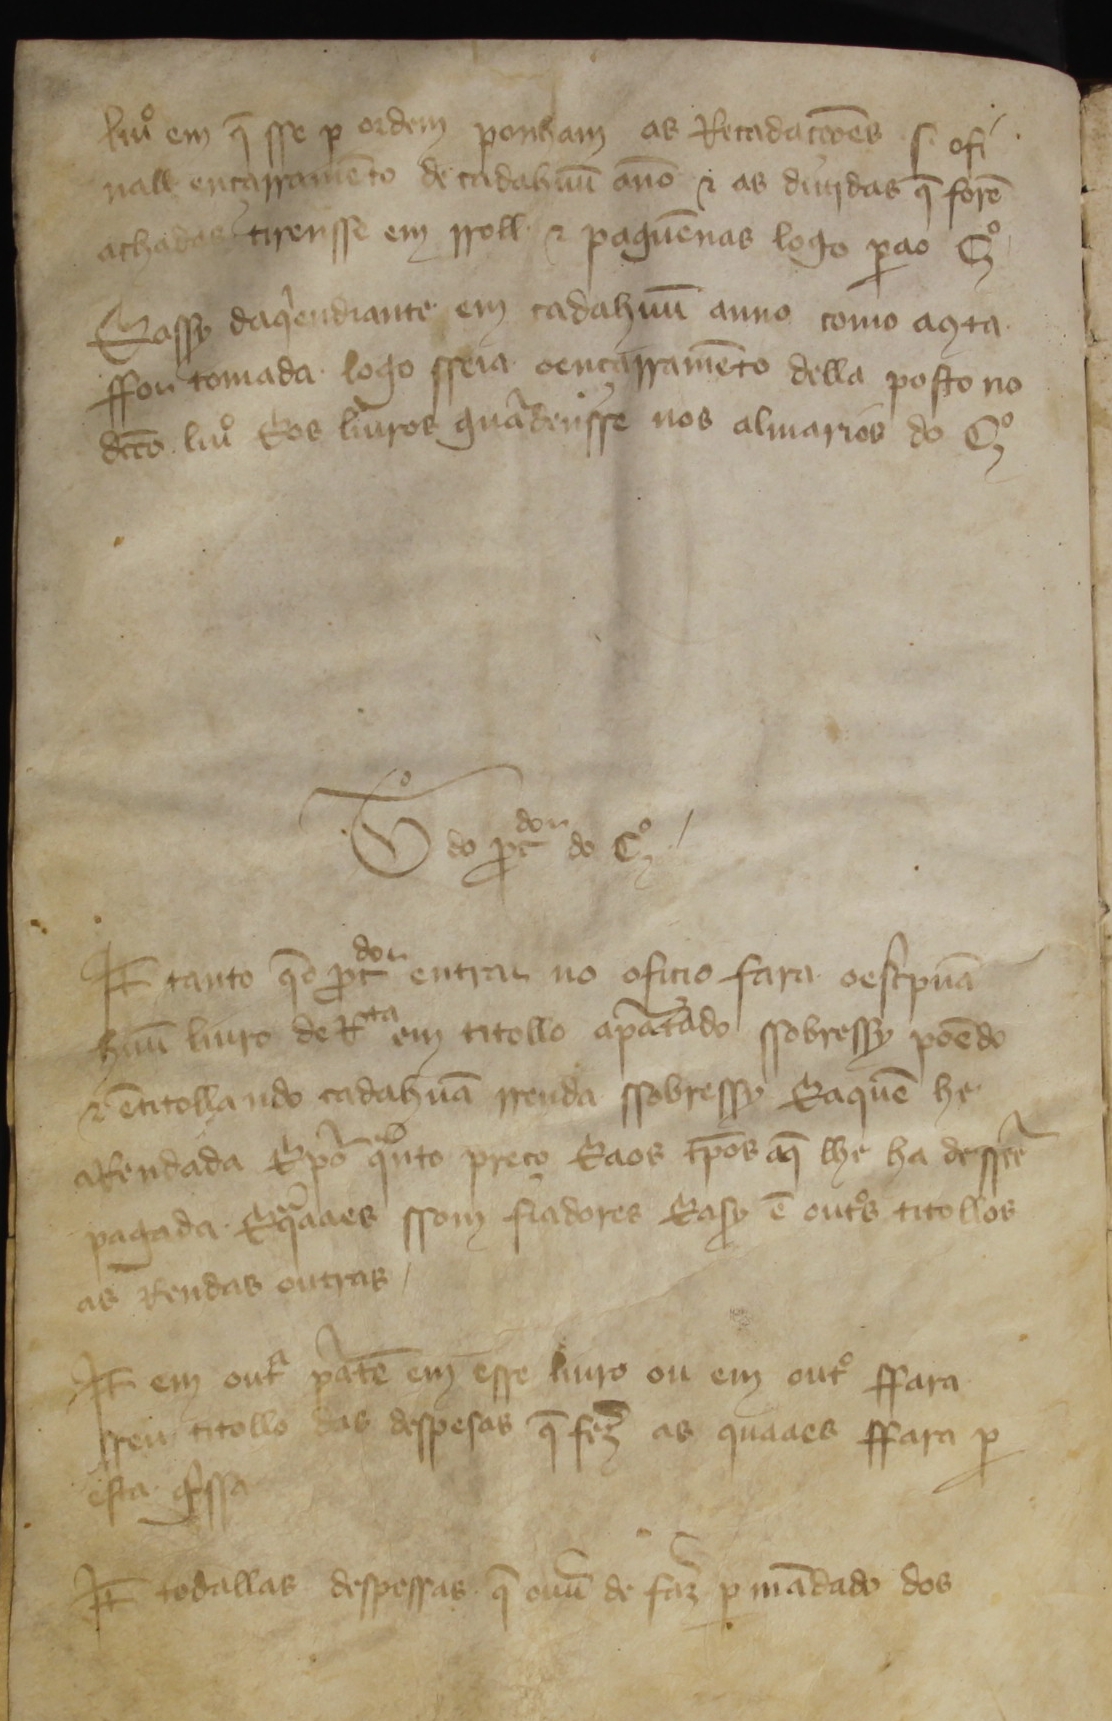 liuº em q̃ sse p ordem ponham as Recadaçõoes .s. ofi
nall ençarramẽto de cadahuũ ano ⁊ as diuydas q̃ forẽ
achadas tirensse em rroll ⁊ paguẽnas logo pao Cº
E assy daqendiante em cadahuũ anno como a 9ta
ffor tomada logo sseia oençarramẽto della posto no
dcto liuº E os liuros guãdensse nos almarios do Cº
Tº do p̃cdor do Cº
It tanto q̃ o p̃cdor entrar no oficio fara oescpuã
huũ liuro de Rta em titollo apãtado ssobressy poẽdo
⁊ ẽtitollando cadahuã rrenda ssobressy E aquẽ he
aRendada E põ quto preço E aos tp̃os aq̃ lhe ha desseer
pagada E q̃aaes ssom fiadores E asy ẽ outºs titollos
as Rendas outras /
It em outª pãte em esse liuro ou em outº ffara
sseu titollo das despesas q̃ fez̃ as quaaes ffara p
esta gssa
It todallas despessas q̃ ouũ de faz̃ p mãdado dos